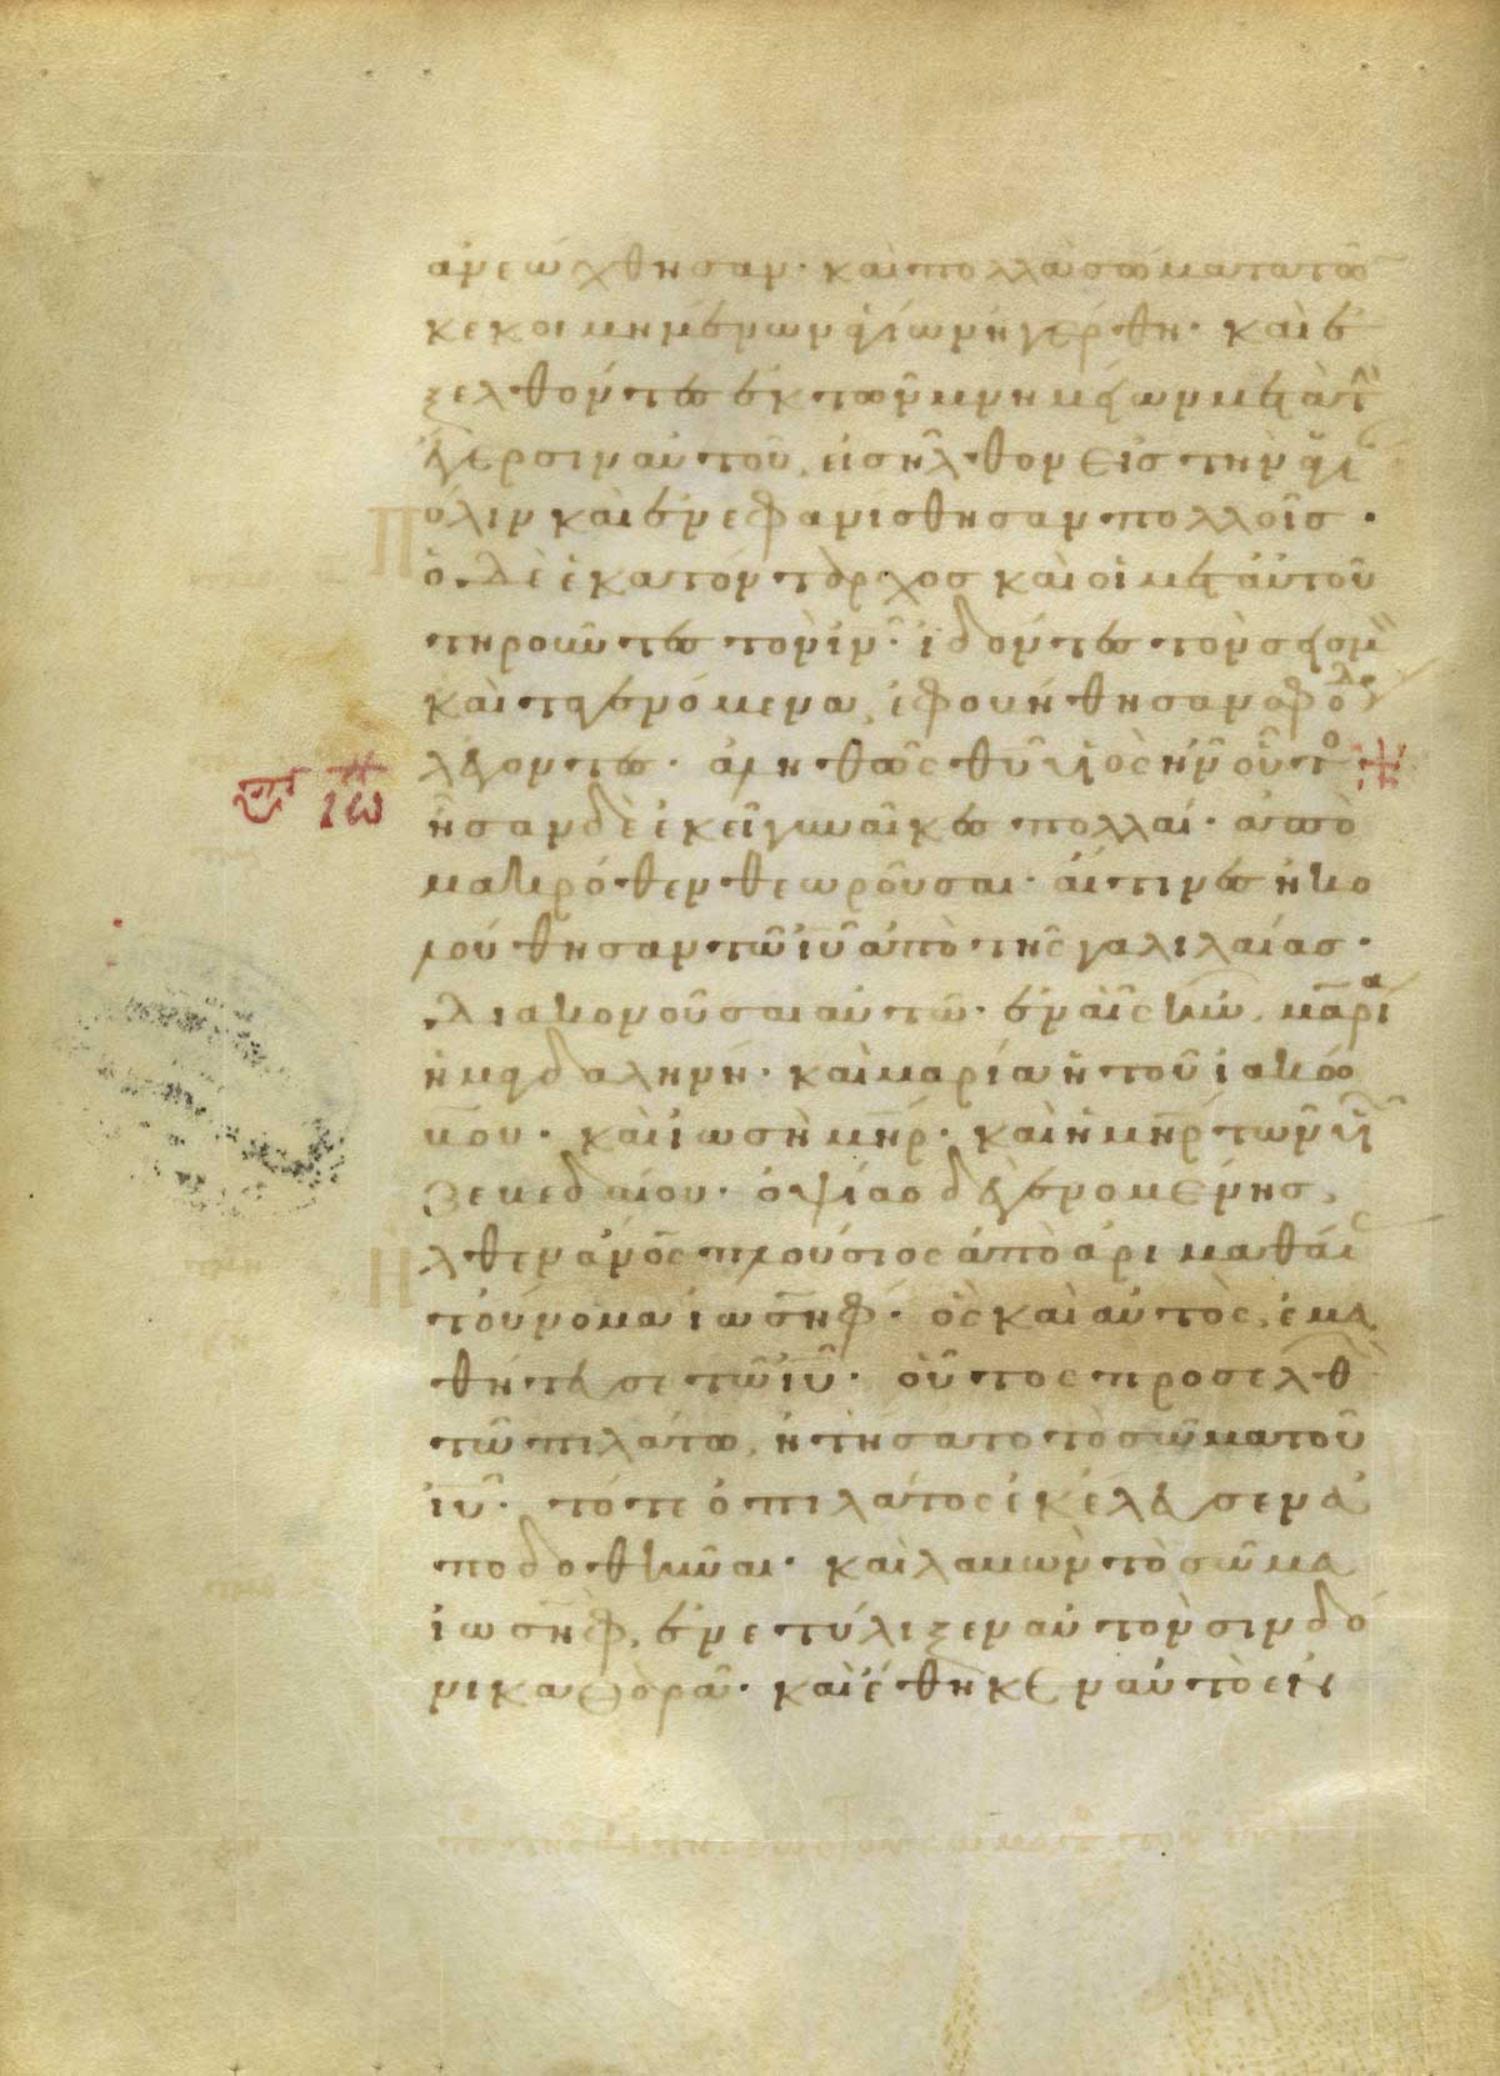 ἀνεώχθησαν· καὶ πολλὰ σώματα τῶ
κεκοιμημένων ἁγίων ἠγέρθη· καὶ ἐ
ξελθόντες ἐκ τῶν μνημείων μετὰ τ̀
ἔγερσιν αὐτοῦ, εἰσῆλθον εἰς τὴν ἁγί
πόλιν καὶ ἐνεφανίσθησαν πολλοῖς·
ὁ δὲ ἑκατόνταρχος καὶ οἱ μετ αὐτοῦ
τηροῦντες τὸν ιν̄· ἰδόντες τὸν σεισμ
καὶ τὰ γενόμενα, ἐφοβήθησαν σφόδ
λέγοντες· ἀληθῶς θῡ υἱὸς ἦν οὗτο
ἦσαν δὲ ἐκεῖ γυναῖκες πολλαί· ἀπὸ
μακρόθεν θεωροῦσαι· αἵτινες ἠκο
λούθησαν τῶ ιῡ ἀπὸ τῆς γαλιλαίας·
διακονοῦσαι αὐτῶ· ἐν αἷς ἦν, μαρία
ἡ μαγδαληνή· καὶ μαρία ἡ τοῦ ἰακώ
βου· καὶ ἰωσὴ μηρ̄· καὶ ἡ μηρ̄ τῶν υἱ
ζεβεδαίου· ὀψίας δὲ γενομένης,
ἦλθεν ἄνος̄ πλούσιος ἀπὸ ἀριμαθαί
τοὔνομα ἰωσηφ· ὃς καὶ αὐτὸς, ἐμα
θήτευσε τῶ ιῡ· οὗτος προσελθ
τῶ πιλάτω, ἠτήσατο τὸ σῶμα τοῦ
ιῡ· τότε ὁ πιλάτος ἐκέλευσεν ἀ
ποδοθῆναι· καὶ λαβὼν τὸ σῶμα
ἰωσὴφ, ἐνετύλιξεν αὐτὸ ἐν σινδό
νι καθαρᾶ· καὶ ἔθηκεν αὐτὸ ἐν